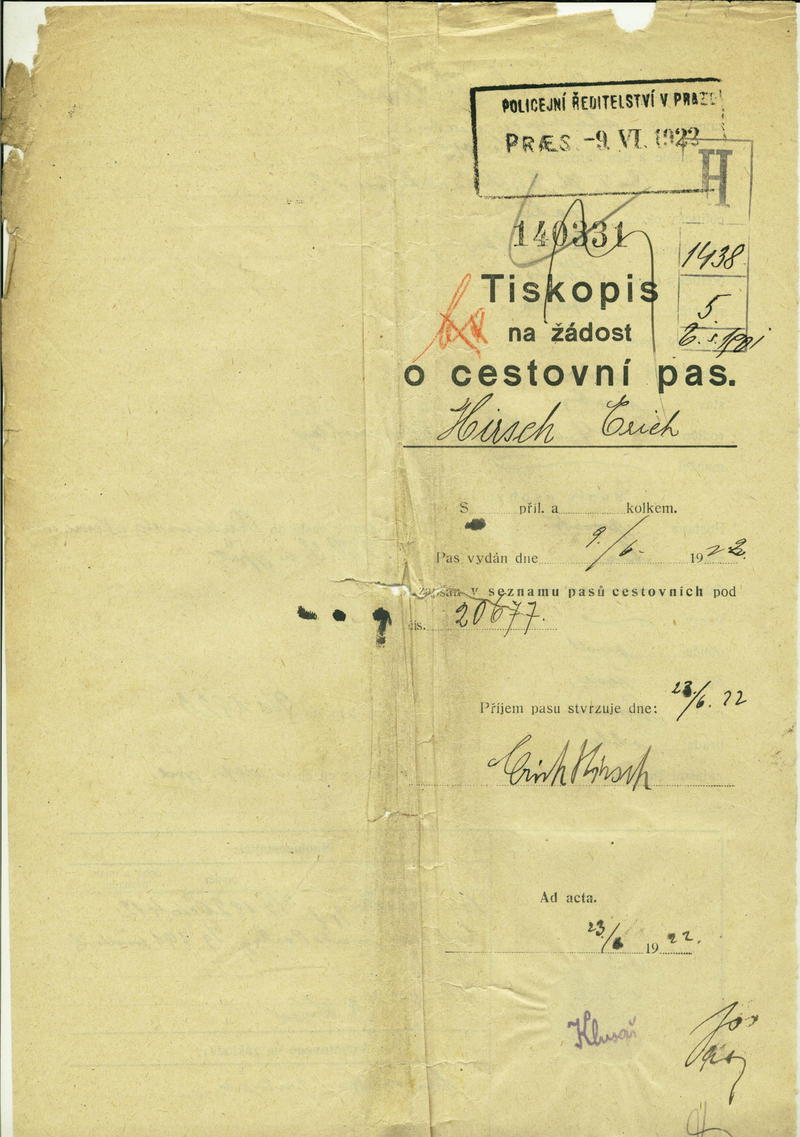 POLICEJNÍ ŘEDITELSTVÍ V PRAZE
PRÆS -9. VI. 1922
H
140331
1438
5
Tiskopis
na žádost
o cestovní pas.
Hirsch Erich
S příl. a kolkem.
Pas vydán dne 9/6. 1922.
zapsán v seznamu pasů cestovních pod
čís. 20677.
Příjem pasu stvrzuje dne: 23/6. 22
Erich Hirsch
Ad acta.
23/6 1922.